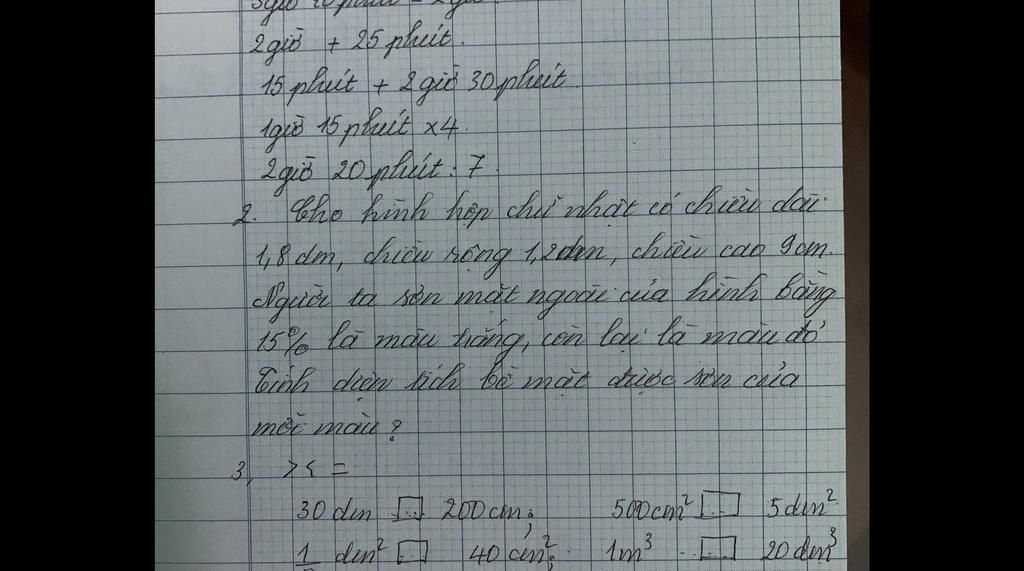 2giờ + 25 phút.
15 phút + 2 giờ 30 phút
1giờ 15 phút x4.
2giờ 20 phút : 7
2. Cho hình hộp chữ nhật có chiều dài
1,8 dm, chiều rộng 1,2dm, chiều cao 9cm.
Người ta sơn mặt ngoài của hình bằng
15% là màu trắng, còn lại là màu đỏ
Tính diện tích bề mặt được sơn của
mỗi màu?
3, > < =
30 dm [...] 200 cm; 500 cm² [...] 5 dm²
dm² [...] 40 cm²; 1m³ [...] 20 dm³